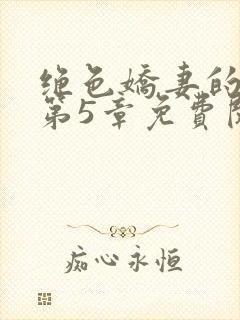 绝色娇妻的
第5章免費
痴心永恒